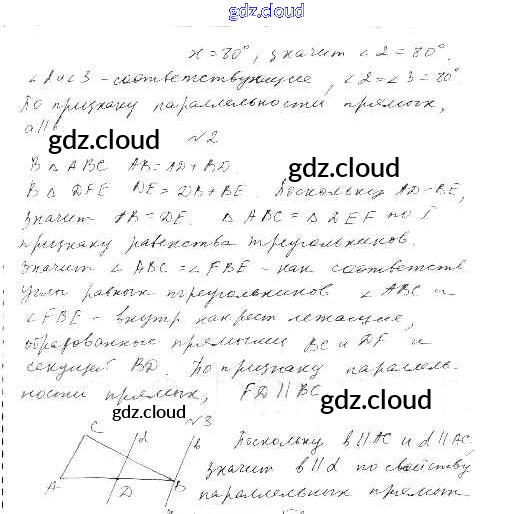 gdz.cloud
x = 80°, значит ∠2 = 80°.
∠2 и ∠3 - соответствующие, ∠2 = ∠3 = 80°
По признаку параллельности прямых,
a || b
gdz.cloud
№2
gdz.cloud
В △ ABC AB = AD + BD.
В △ DFE DE = DB + BE. Поскольку AD = BE,
значит AB = DE. △ ABC = △ DEF по I
признаку равенства треугольников.
Значит ∠ ABC = ∠ FBE - как соответств.
углы равных треугольников ∠ ABC и
∠ FBE - внутр накрест лежащие,
образованные прямыми BC и DF и
секущей BD. По признаку параллель-
ности прямых, FD || BC
gdz.cloud
gdz.cloud
№3
C d b
A D B
Поскольку b || AC и d || AC,
значит b || d по свойству
параллельных прямых